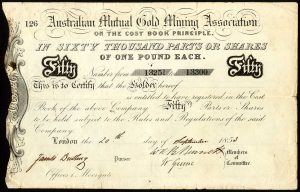 126 Australian Mutual Gold Mining Association.
ON THE COST BOOK PRINCIPLE.
IN SIXTY THOUSAND PARTS OR SHARES
OF ONE POUND EACH.
Fifty Fifty
Number from 13251 13300
This is to Certify that the Holder hereof
is entitled to have registered in the Cost
Book of the above Company Fifty Parts or Shares
to be held subject to the Rules and Regulations of the said
Company.
London the 20th day of September 1853
Purser Members of Committee
Offices